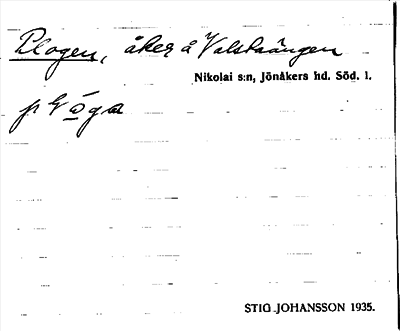 Plogen, åker å Valstaängen
Nikolai s:n, Jönåkers hd. Söd. l.
STIG JOHANSSON 1935.